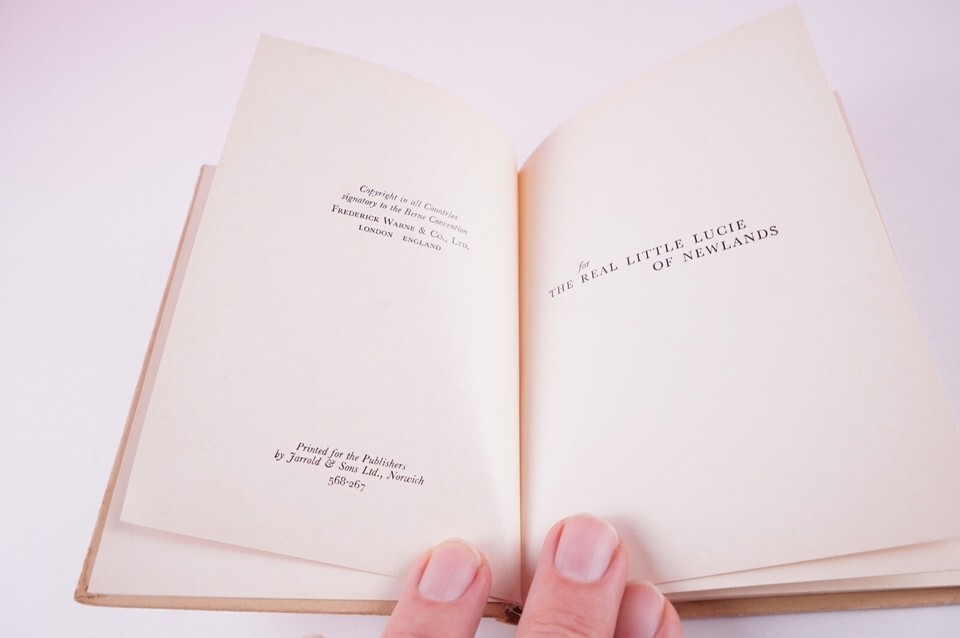 Copyright in all Countries
signatory to the Berne Convention
FREDERICK WARNE & CO., LTD.
LONDON ENGLAND
Printed for the Publishers
by Jarrold & Sons Ltd., Norwich
568·267
for
THE REAL LITTLE LUCIE
OF NEWLANDS